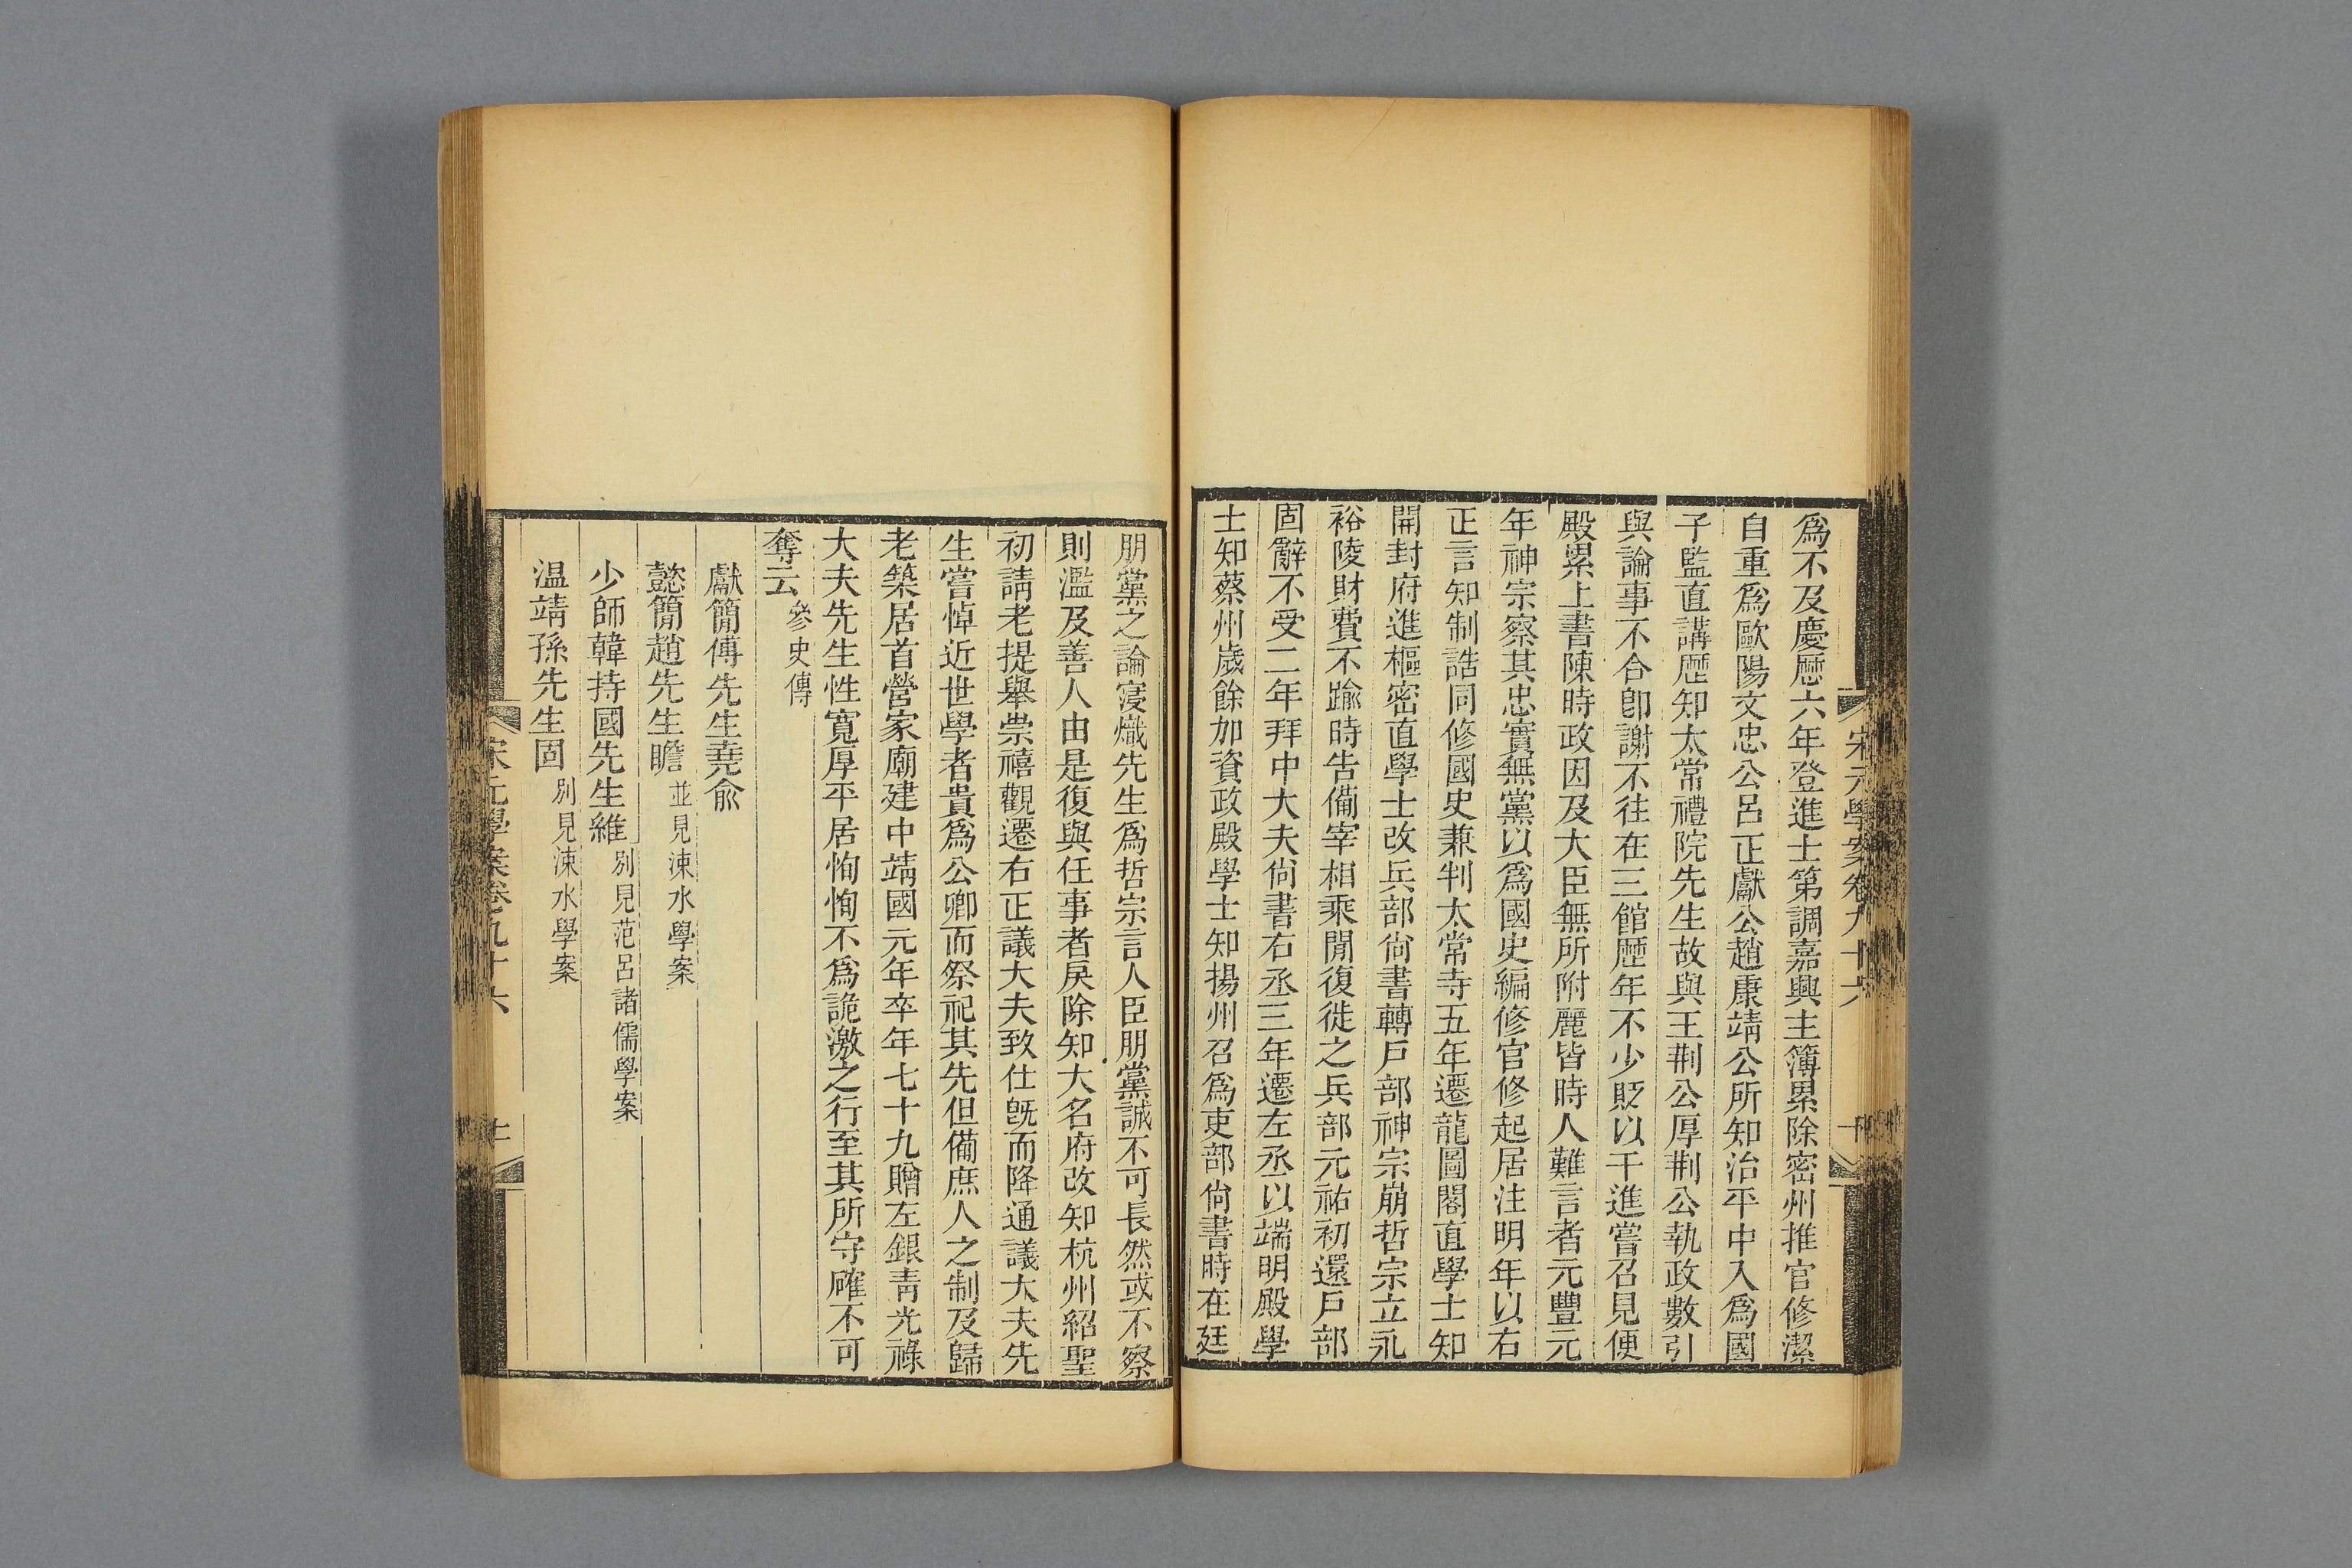 爲不及慶厯六年登進士第調嘉興主簿累除密州推官修潔
自重爲歐陽文忠公呂正獻公趙康靖公所知治平中入爲國
子監直講厯知太常禮院先生故與王荆公厚荆公執政數引
與論事不合卽謝不往在三館厯年不少貶以干進嘗召見便
殿累上書陳時政因及大臣無所附麗皆時人難言者元豐元
年神宗察其忠實無黨以爲國史編修官修起居注明年以右
正言知制誥同修國史兼判太常寺五年遷龍圖閣直學士知
開封府進樞密直學士改兵部尙書轉戸部神宗崩哲宗立永
裕陵財費不踰時告備宰相乘閒復徙之兵部元祐初還戸部
固辭不受二年拜中大夫尙書右丞三年遷左丞以端明殿學
士知蔡州歲餘加資政殿學士知揚州召爲吏部尙書時在廷
宋元學案卷九十六
朋黨之論寖熾先生爲哲宗言人臣朋黨誠不可長然或不察
則濫及善人由是復與任事者戾除知大名府改知杭州紹聖
初請老提舉崇禧觀遷右正議大夫致仕旣而降通議大夫先
生嘗悼近世學者貴爲公卿而祭祀其先但備庶人之制及歸
老築居首營家廟建中靖國元年卒年七十九贈左銀青光祿
大夫先生性寬厚平居恂恂不爲詭激之行至其所守確不可
奪云參史傳
獻簡傅先生堯俞
懿簡趙先生瞻並見涑水學案
少師韓持國先生維別見范呂諸儒學案
温靖孫先生固別見涑水學案
宋元學案卷九十六